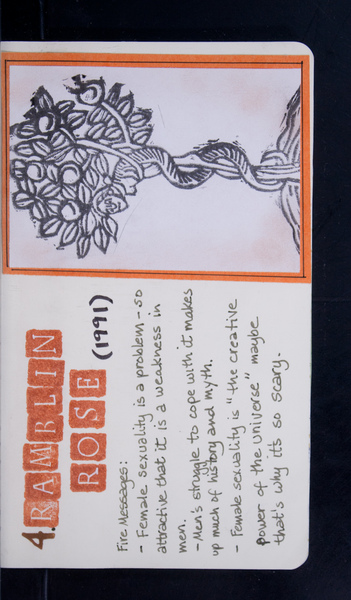 4. RAMBLIN
ROSE (1991)
Fire Messages:
- Female sexuality is a problem - so
attractive that it is a weakness in
men.
- Men's struggle to cope with it makes
up much of history and myth.
- Female sexuality is "the creative
power of the universe" maybe
that's why it's so scary.